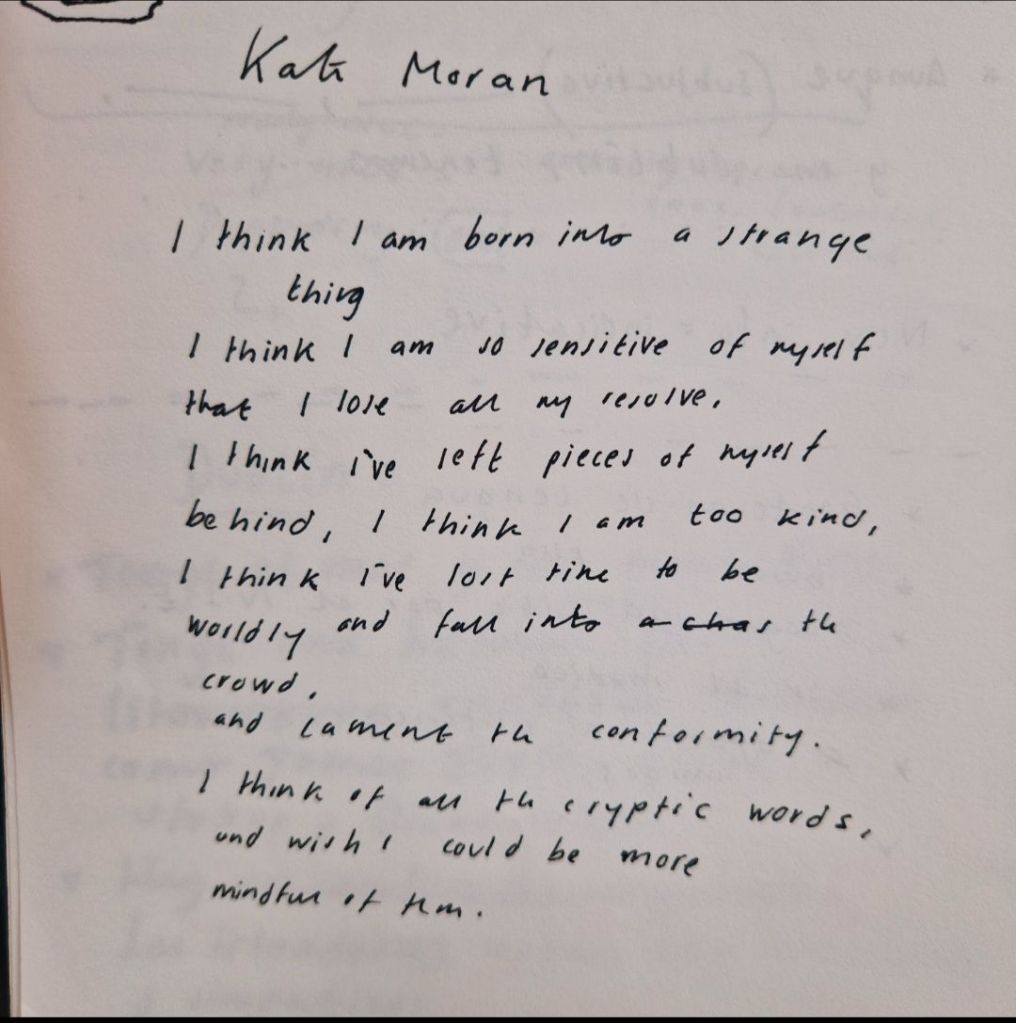 Kate Moran
I think I am born into a strange
thing
I think I am so sensitive of myself
that I lose all my resolve.
I think i've left pieces of myself
behind, I think I am too kind,
I think i've lost time to be
worldly and fall into a chas the
crowd.
and lament the conformity.
I think of all the cryptic words,
and wish I could be more
mindful of them.